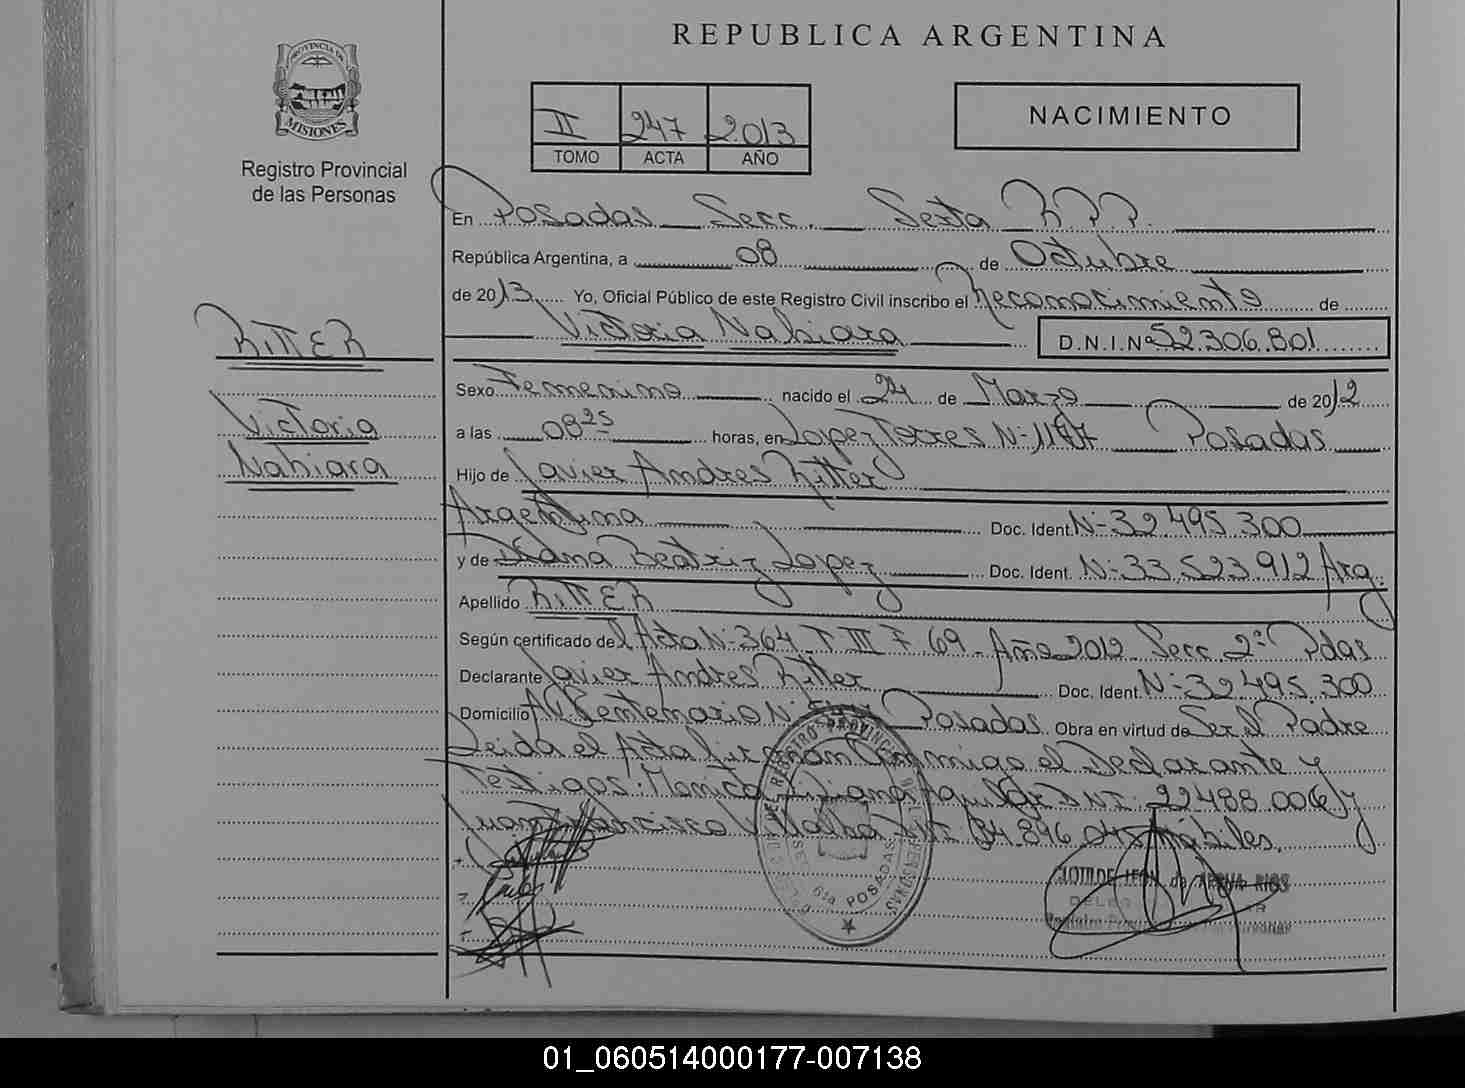 REPUBLICA ARGENTINA
PROVINCIA DE
MISIONES
Registro Provincial
de las Personas
II 247 2013
TOMO ACTA AÑO
NACIMIENTO
En Posadas Secc. Sexta R.P.P.
República Argentina, a 08 de Octubre
de 2013 Yo, Oficial Público de este Registro Civil inscribo el Reconocimiento de
Victoria Nahiara D.N.I.Nº 52.306.801
RITTER
Victoria
Nahiara
Sexo Femenino nacido el 24 de Marzo de 2012
a las 08 25 horas, en Lopez Torres N- Posadas
Hijo de Javier Andres Ritter
Argentina Doc. Ident. N-32 495.300
y de Beatriz Lopez Doc. Ident. N-33.523.912 Arg.
Apellido RITTER
Según certificado del Acta N-364 T III F 69. Año 2012 Secc 2ª Pdas
Declarante Javier Andres Ritter Doc. Ident. N-32 495.300
Domicilio Av Centenario N Posadas Obra en virtud de Ser el Padre
Leida el Acta firman Conmigo el Declarante y
Testigos: Monica Liliana DNI 22488.006 y
Juan Francisco Villalba DNI hábiles.
6ta POSADAS
01_060514000177-007138